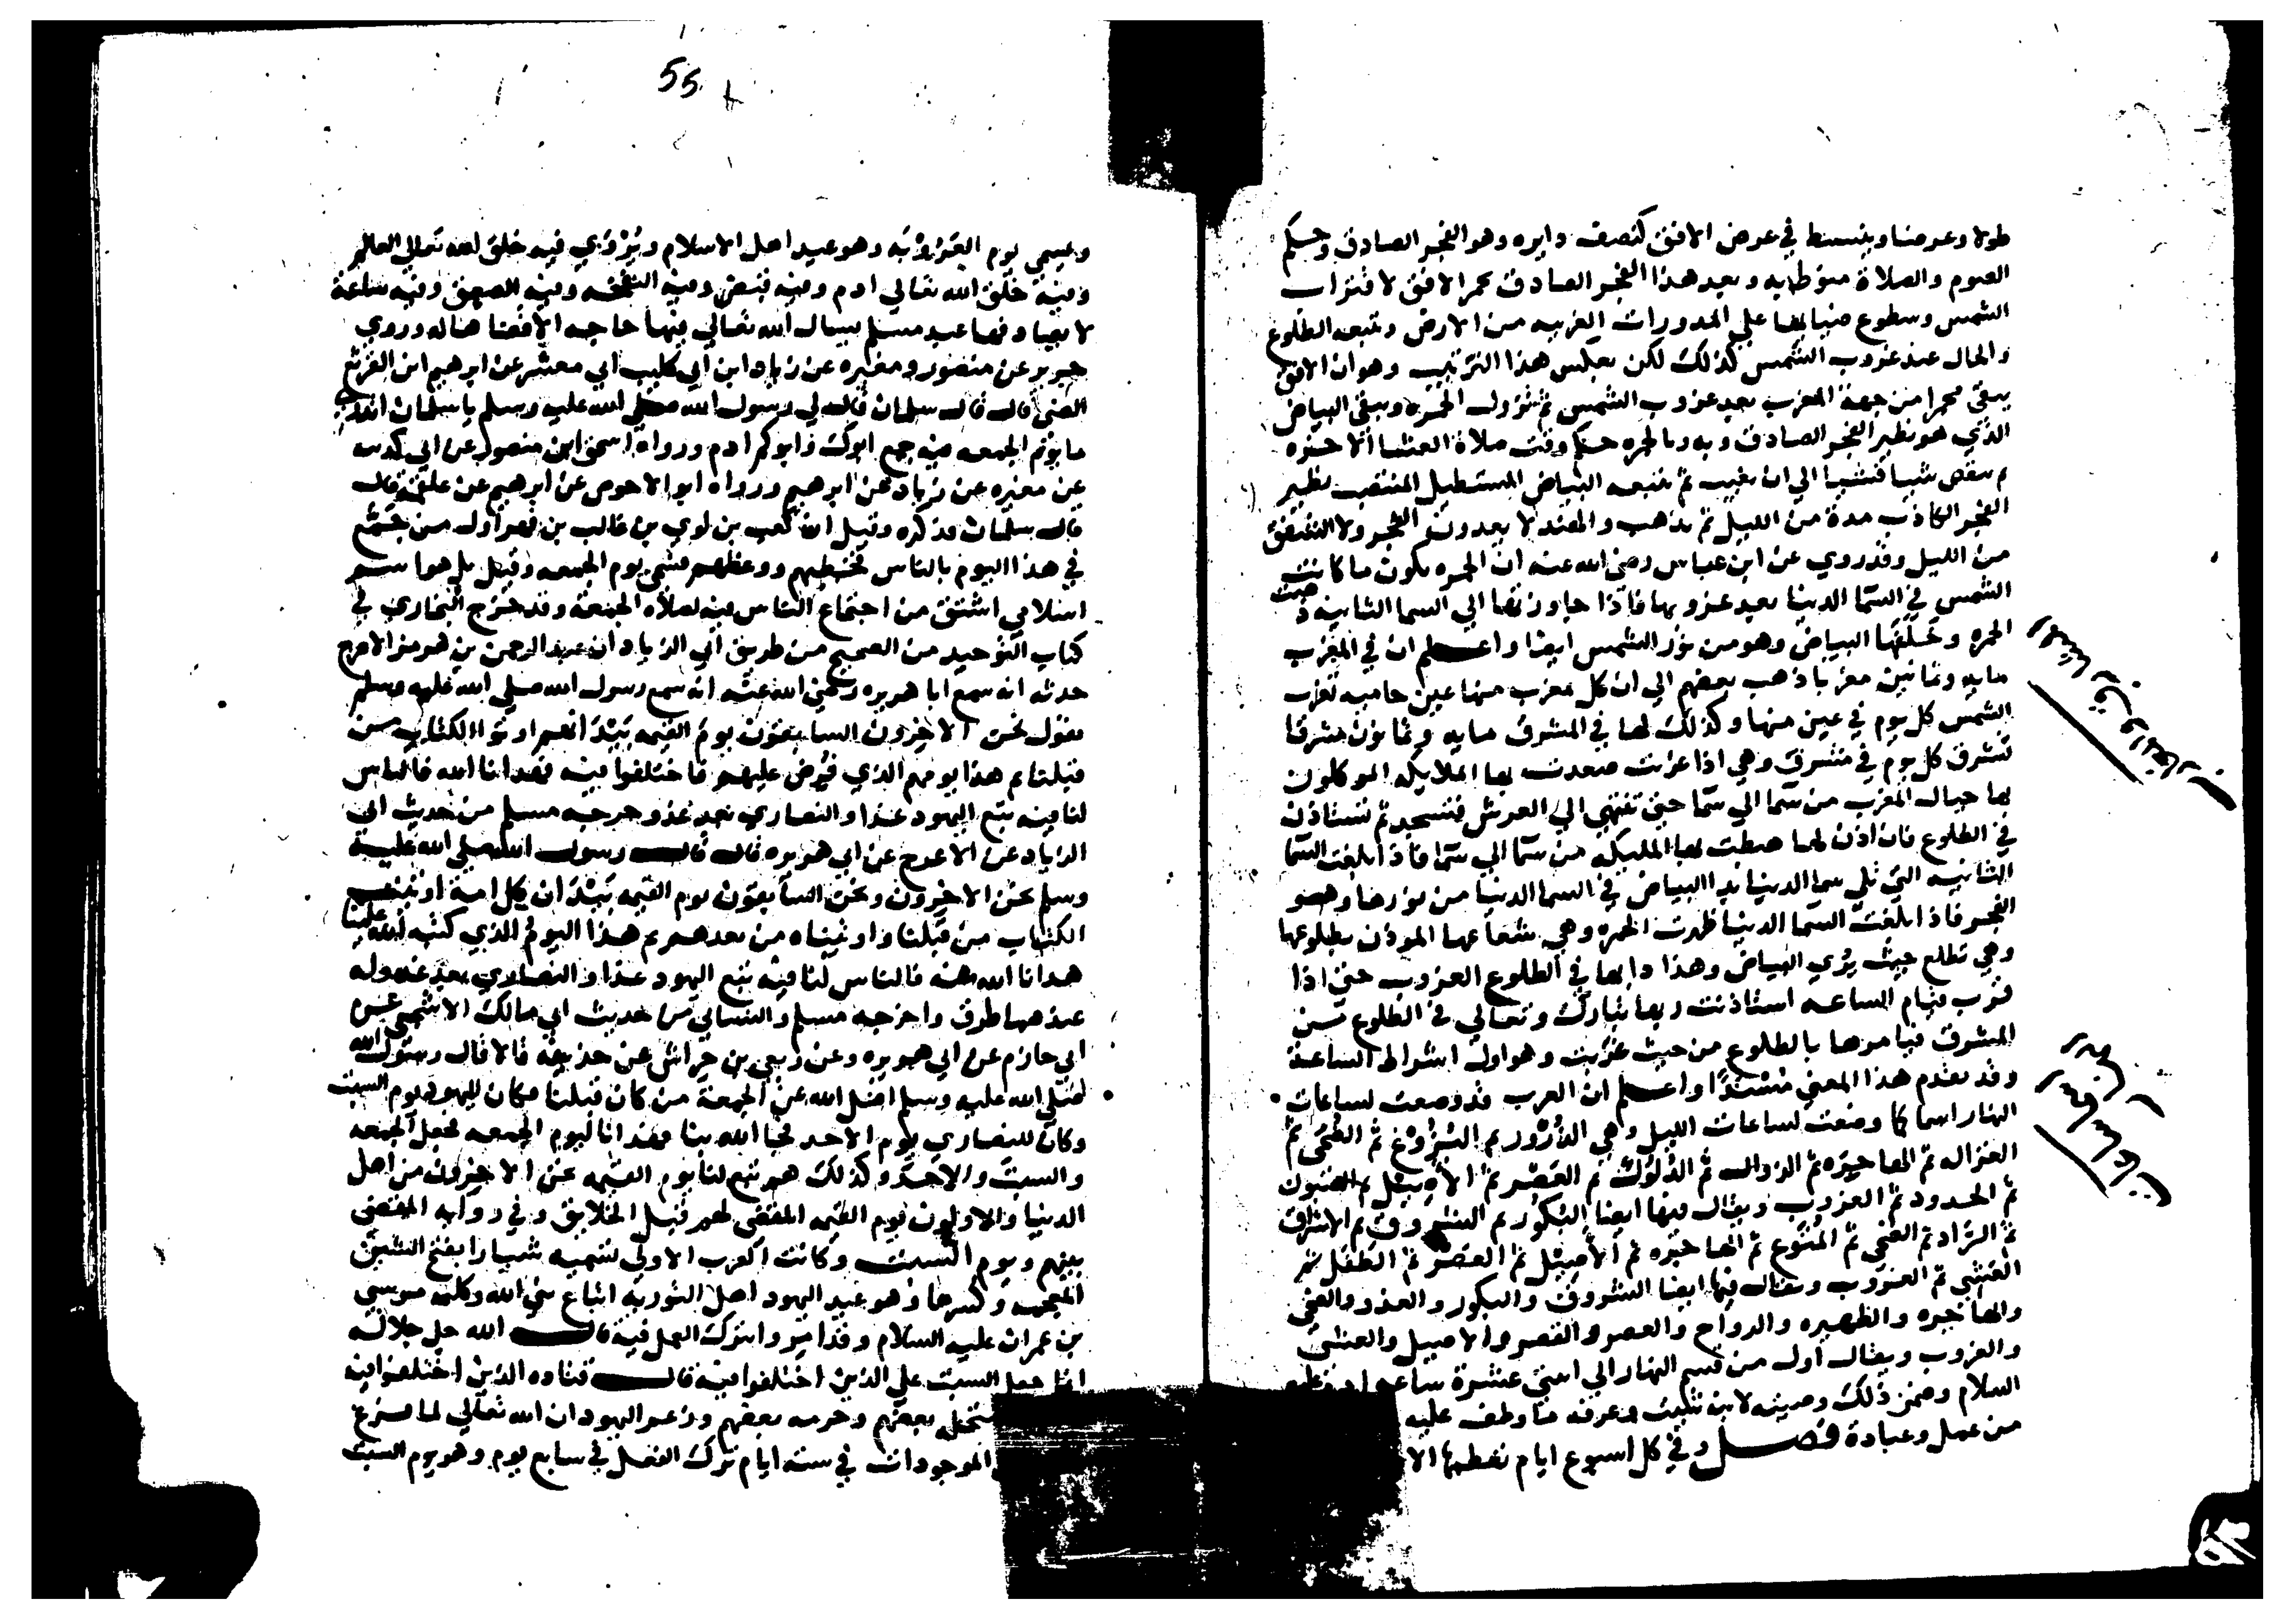 طولا وعرضا وينبسط في عرض الافق كنصف دايره وهو الفجر الصادق وحكم
الصوم والصلاة منوطا به وبعد هذا الفجر الصادق يحمر الافق لاقتراب
الشمس وسطوع ضيايها على المدورات الغربيه من الارض ويتبعه الطلوع
والحال عند غروب الشمس كذلك لكن بعكس هذا الترتيب وهو ان الافق
يبقى محمرا من جهة المغرب بعد غروب الشمس ثم تزول الحمره ويبقى البياض
الذي هو نظير الفجر الصادق وبه وبالحمره حكم وقت صلاة العشا الاخره
ثم ينقص شيا فشيا الي ان يغيب ثم يتبعه البياض المستطيل المنتصب نظير
الفجر الكاذب مدة من الليل ثم يذهب والهند لا يعدون الفجر ولا الشفق
من الليل وقد روي عن ابن عباس رضي الله عنه ان الحمره تكون ما كانت
الشمس في السما الدنيا بعد غروبها فاذا جاوزتها الي السما الثانيه ذهبت
الحمره وخلفها البياض وهو من نور الشمس ايضا واعلم ان في المغرب
مايه وثمانين مغربا ذهب بعضهم الي ان كل مغرب منها عين حاميه تغرب
الشمس كل يوم في عين منها وكذلك لها في المشرق مايه وثمانون مشرقا
تشرق كل يوم في مشرق وهي اذا غربت صعدت بها الملايكه الموكلون
بها حيال المغرب من سما الي سما حتى تنتهي الي العرش فتسجد ثم تستاذن
في الطلوع فان اذن لها هبطت بها المليكه من سما الي سما فاذا بلغت السما
الثانيه التي تلي سما الدنيا بدا البياض في السما الدنيا من نورها وهو
الفجر فاذا بلغت السما الدنيا ظهرت الحمره وهي شعاعها الموذن بطلوعها
وهي تطلع حيث يري البياض وهذا دابها في الطلوع الغروب حتى اذا
قرب قيام الساعه استاذنت ربها تبارك وتعالي في الطلوع من
المشرق فيامرها بالطلوع من حيث غربت وهو اول اشراط الساعة
وقد تقدم هذا المعني مسندا واعلم ان العرب قد وضعت لساعات
النهار اسما كما وضعت لساعات الليل وهي الذرور ثم البزوغ ثم الضحى ثم
الغزاله ثم الهاجره ثم الزوال ثم الدلوك ثم العصر ثم الاصيل ثم الصبوب
ثم الحدود ثم الغروب ويقال فيها ايضا البكور ثم الشروق ثم الاشراق
ثم الراد ثم الضحى ثم المتوع ثم الهاجره ثم الاصيل ثم العصر ثم الطفل ثم
العشي ثم الغروب ويقال فيها ايضا الشروق والبكور والغدو والضحى
والهاجره والظهيره والرواح والعصر والقصر والاصيل والعشي
والغروب ويقال اول من قسم النهار الي اثنتي عشرة ساعه
السلام وضمن ذلك وصيته لابنه شيث وعرفه ما وظف عليه
من عمل وعبادة فصل وفي كل اسبوع ايام تعظمها
55
ويسمي يوم العروبه وهو عيد اهل الاسلام ويروي فيه خلق الله تعالي العالم
وفيه خلق الله تعالي ادم وفيه قبض وفيه النفخه وفيه الصعق وفيه ساعة
لا يوافقها عبد مسلم يسال الله تعالي فيها حاجه الا قضاها له وروي
جرير عن منصور ومغيره عن زياد ابن ابي كليب ابي معشر عن ابرهيم ابن القرثع
الضبي قال قال سلمان قال لي رسول الله صلي الله عليه وسلم يا سلمان اتدري
ما يوم الجمعه فيه جمع ابوك وابوكم ادم ورواه اسحق ابن منصور عن ابي كدينه
عن مغيره عن زياد عن ابرهيم ورواه ابو الاحوص عن ابرهيم عن علقمه قال
قال سلمان فذكره وقيل ان كعب بن لوي بن غالب بن فهر اول من جمع
في هذا اليوم بالناس فخطبهم ووعظهم فسمي يوم الجمعه وقيل بل هو اسم
اسلامي اشتق من اجتماع الناس فيه لصلاه الجمعة وقد خرج البخاري في
كتاب التوحيد من الصحيح من طريق ابي الزياد ان عبد الرحمن بن هرمز الاعرج
حدثه انه سمع ابا هريره رضي الله عنه انه سمع رسول الله صلي الله عليه وسلم
يقول نحن الاخرون السابقون يوم القيمه بيد انهم اوتوا الكتاب من
قبلنا ثم هذا يومهم الذي فرض عليهم فاختلفوا فيه فهدانا الله فالناس
لنا فيه تبع اليهود غدا والنصاري بعد غد وخرجه مسلم من حديث ابي
الزياد عن الاعرج عن ابي هريره قال قال رسول الله صلي الله عليه
وسلم نحن الاخرون ونحن السابقون يوم القيمه بيد ان كل امة اوتيت
الكتاب من قبلنا واوتيناه من بعدهم ثم هذا اليوم الذي كتبه الله علينا
هدانا الله له فالناس لنا فيه تبع اليهود غدا والنصاري بعد غد وله
عندهما طرق واخرجه مسلم والنسائي من حديث ابي مالك الاشجعي عن
ابي حازم عن ابي هريره وعن ربعي بن حراش عن حذيفه قالا قال رسول الله
صلي الله عليه وسلم اضل الله عن الجمعة من كان قبلنا فكان لليهود يوم السبت
وكان للنصاري يوم الاحد فجا الله بنا فهدانا ليوم الجمعه فجعل الجمعه
والسبت والاحد وكذلك هم تبع لنا يوم القيمه نحن الاخرون من اهل
الدنيا والاولون يوم القيمه المقضى لهم قبل الخلايق وفي روايه المقضى
بينهم ويوم السبت وكانت العرب الاولي تسميه شيارا بفتح الشين
المعجمه وكسرها وهو عيد اليهود اهل التوريه اتباع نبي الله وكليمه موسي
بن عمران عليه السلام وقد امروا بترك العمل فيه قال الله جل جلاله
انما جعل السبت علي الذين اختلفوا فيه قال قتاده الذين اختلفوا فيه
بعضهم وحرمه بعضهم وزعم اليهود ان الله تعالي لما فرغ
الموجودات في ستة ايام ترك الفعل في سابع يوم وهو يوم السبت